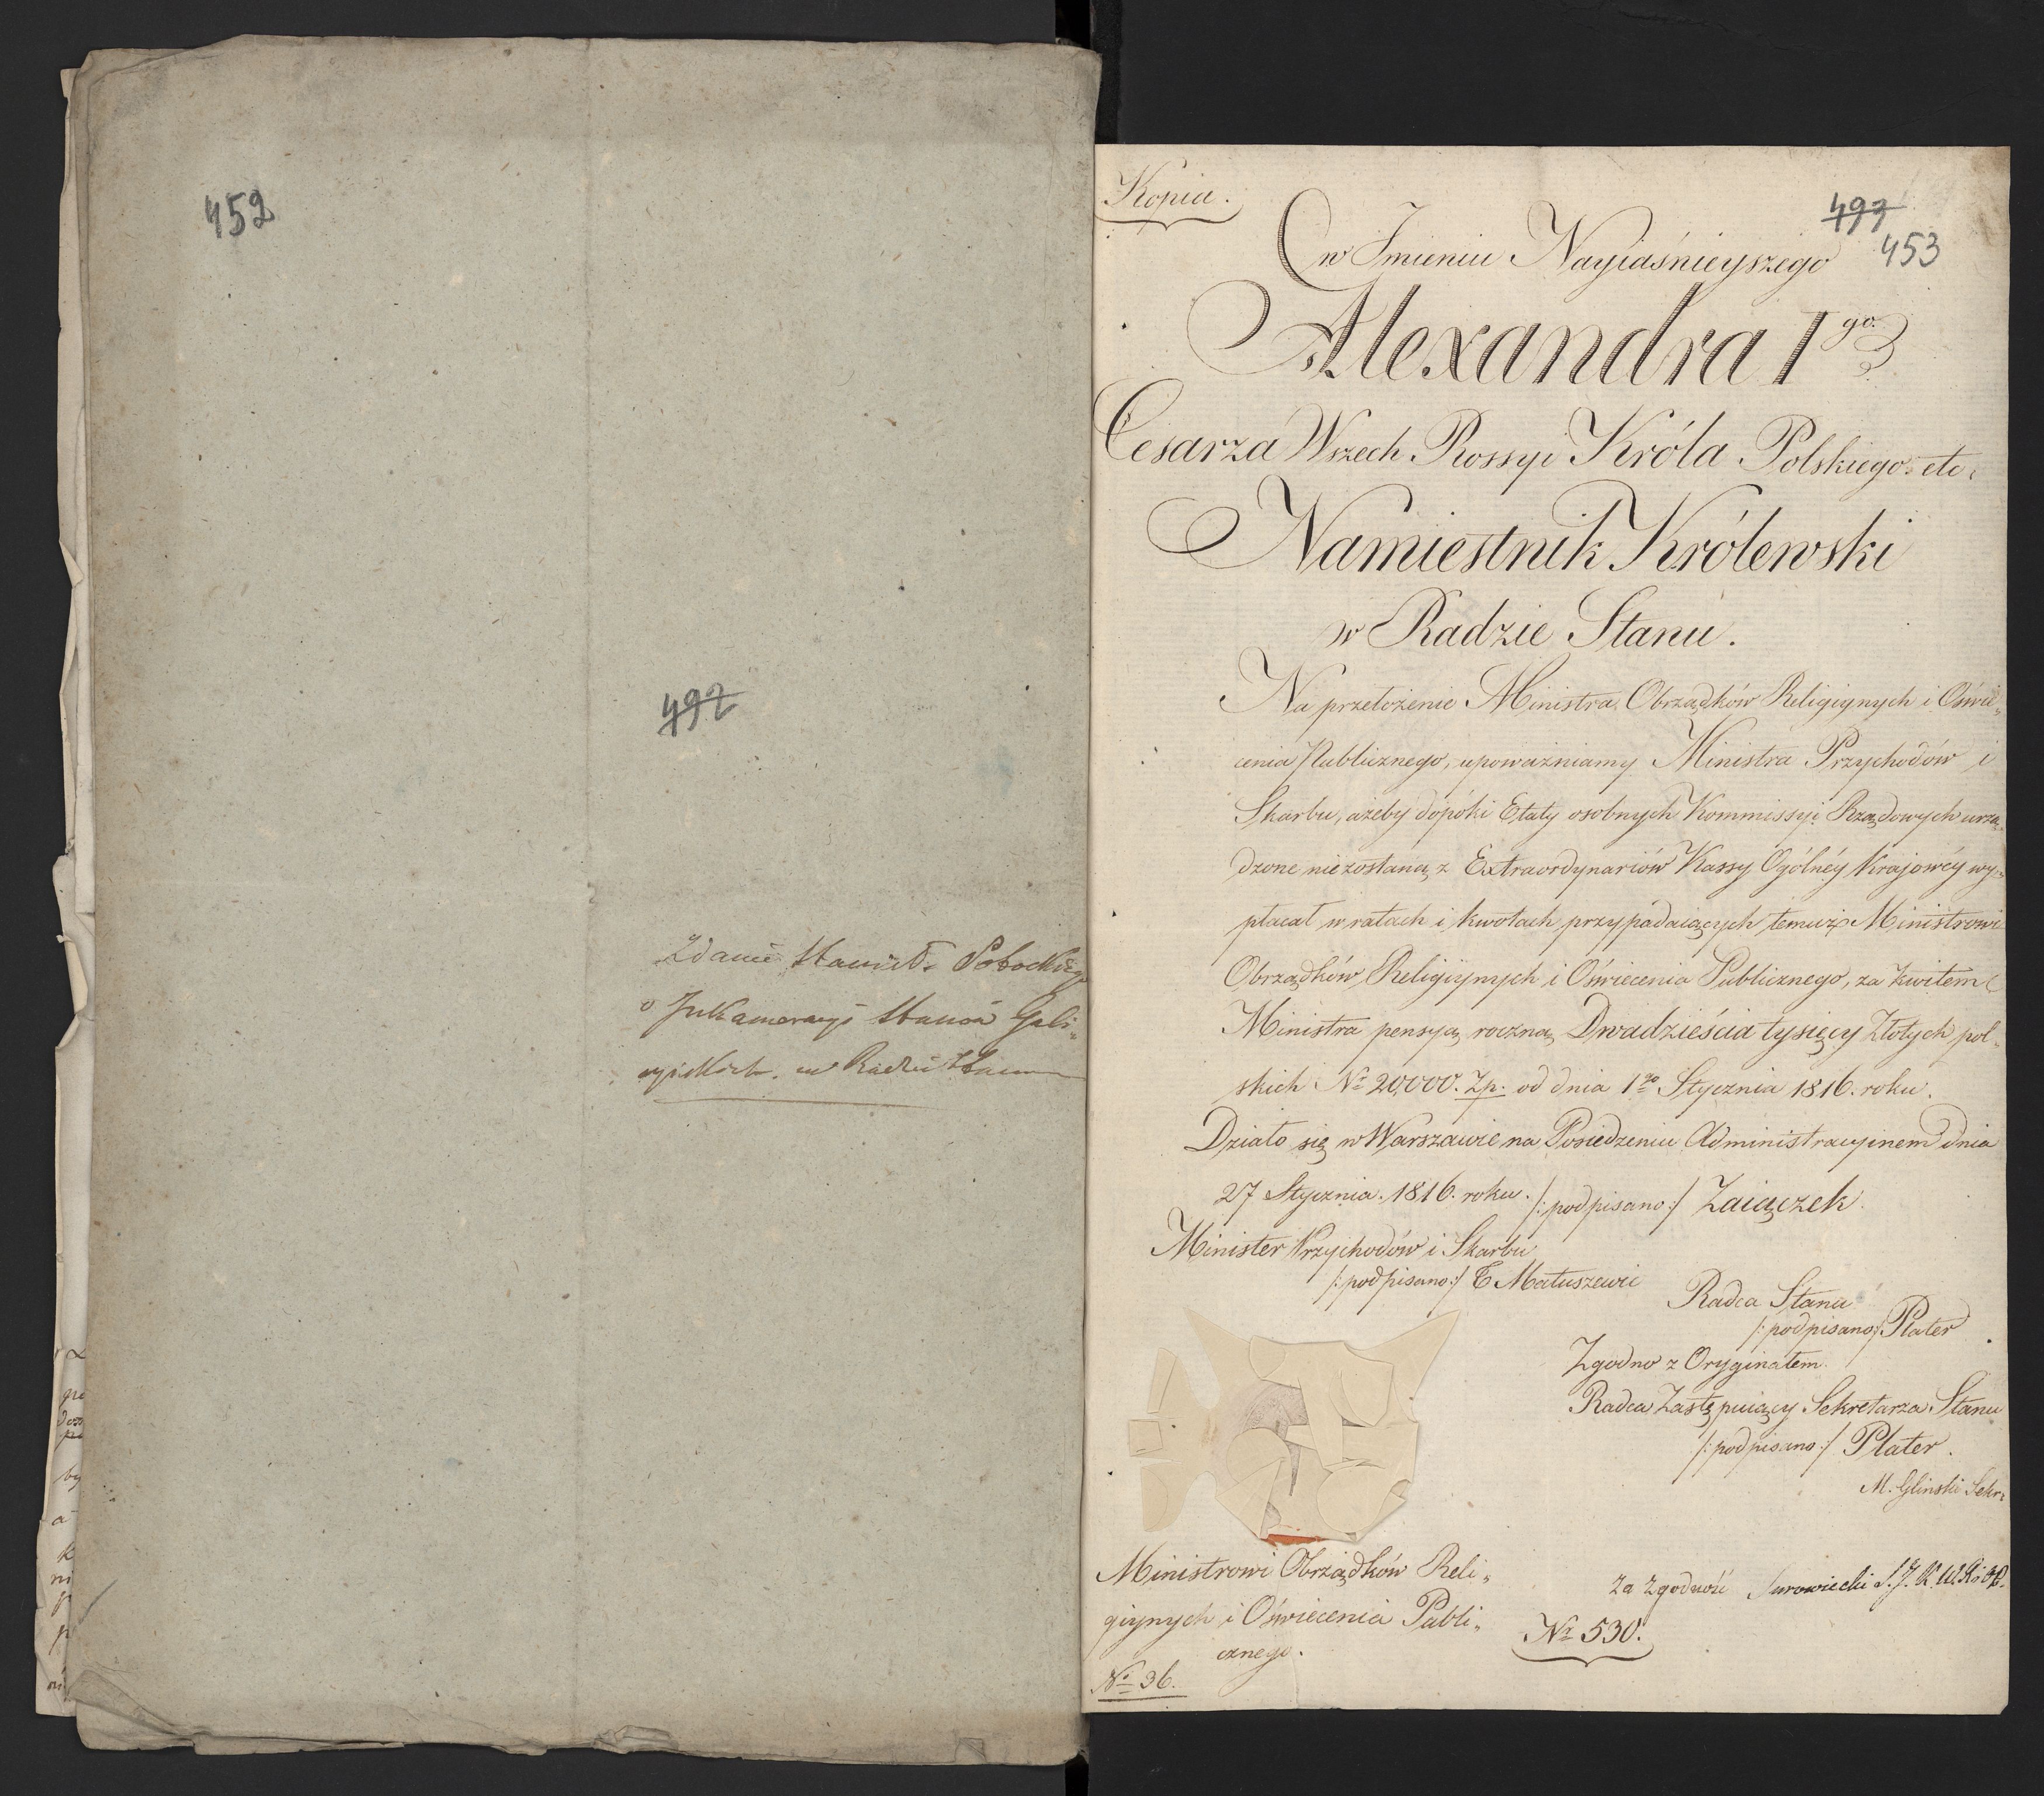 452
492
Zdanie Stanisł. Potockiego
o Inkameracyi Starostw Gali-
cyiskich. w Radzie Stanu
Kopia.
497
453
w Imieniu Nayiaśnieyszego
Alexandra Igo.
Cesarza Wszech Rossyi Króla Polskiego. etc.
Namiestnik Królewski
w Radzie Stanu.
Na przełożenie Ministra Obrządków Religiynych i Oświe„
cenia Publicznego, upoważniamy Ministra Przychodów i
Skarbu, ażeby dopóki Etaty osobnych Kommissyi Rządowych urzą„
dzone niezostaną, z Extraordynariów Kassy Ogólnéy Krajowéy wy„
płacał w ratach i kwotach przypadaiących temuż Ministrowi
Obrządków Religiynych i Oświecenia Publicznego, za kwitem
Ministra pensyą roczną Dwadzieścia tysięcy Złotych pol„
skich No 20,000. Zp. od dnia 1go Stycznia 1816. roku.
Działo się w Warszawie na Posiedzeniu Administracyinem dnia
27 Stycznia. 1816. roku. /:podpisano:/ Zaiączek.
Minister Przychodów i Skarbu
/:podpisano:/ T Matuszewic
Radca Stanu
/:podpisano:/ Plater
Zgodno z Oryginałem.
Radca Zastępuiący Sekretarza Stanu
/:podpisano:/ Plater.
M. Glinski Sekr:
Ministrowi Obrządków Reli„
giynych i Oświecenia Publi„
cznego.
No 36.
Za zgodność Surowiecki S. J. K. W. R. i O. P.
Nr 530.